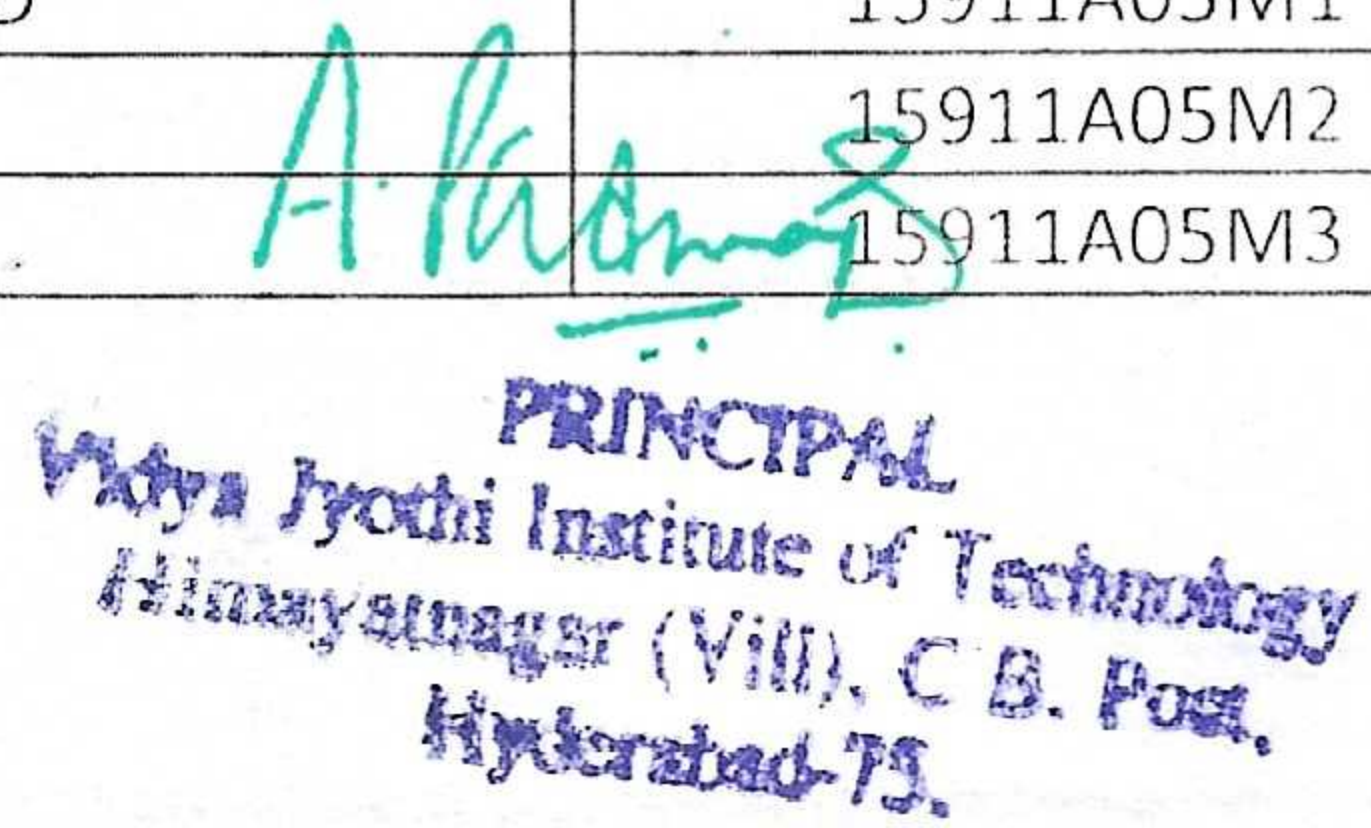 15911A05M1
15911A05M2
15911A05M3
PRINCIPAL
Vidya Jyothi Institute of Technology
Himayatnagar (Vill), C B. Post,
Hyderabad-75.